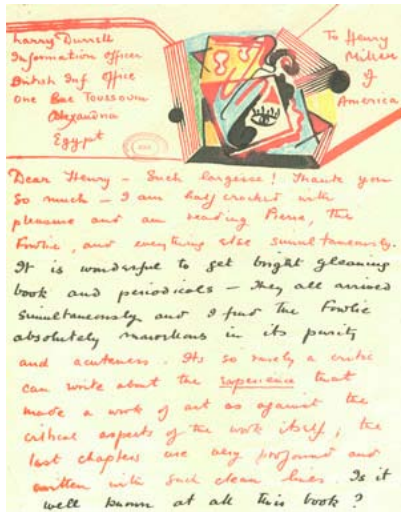 Larry Durrell
Information Officer
British Inf Office
One Rue Toussoum
Alexandria
Egypt
To Henry
Miller
of
America
Dear Henry – Such largesse! Thank you
so much – I am half crocked with
pleasure and am reading Pierre, the
Fowlie, and everything else simultaneously.
It is wonderful to get bright gleaming
book and periodicals – they all arrived
simultaneously and I find the Fowlie
absolutely marvellous in its purity
and acuteness. Its so rarely a critic
can write about the experience that
made a work of art as against the
critical aspects of the work itself; the
last chapters are very profound and
written with such clean lines. Is it
well known at all this book?